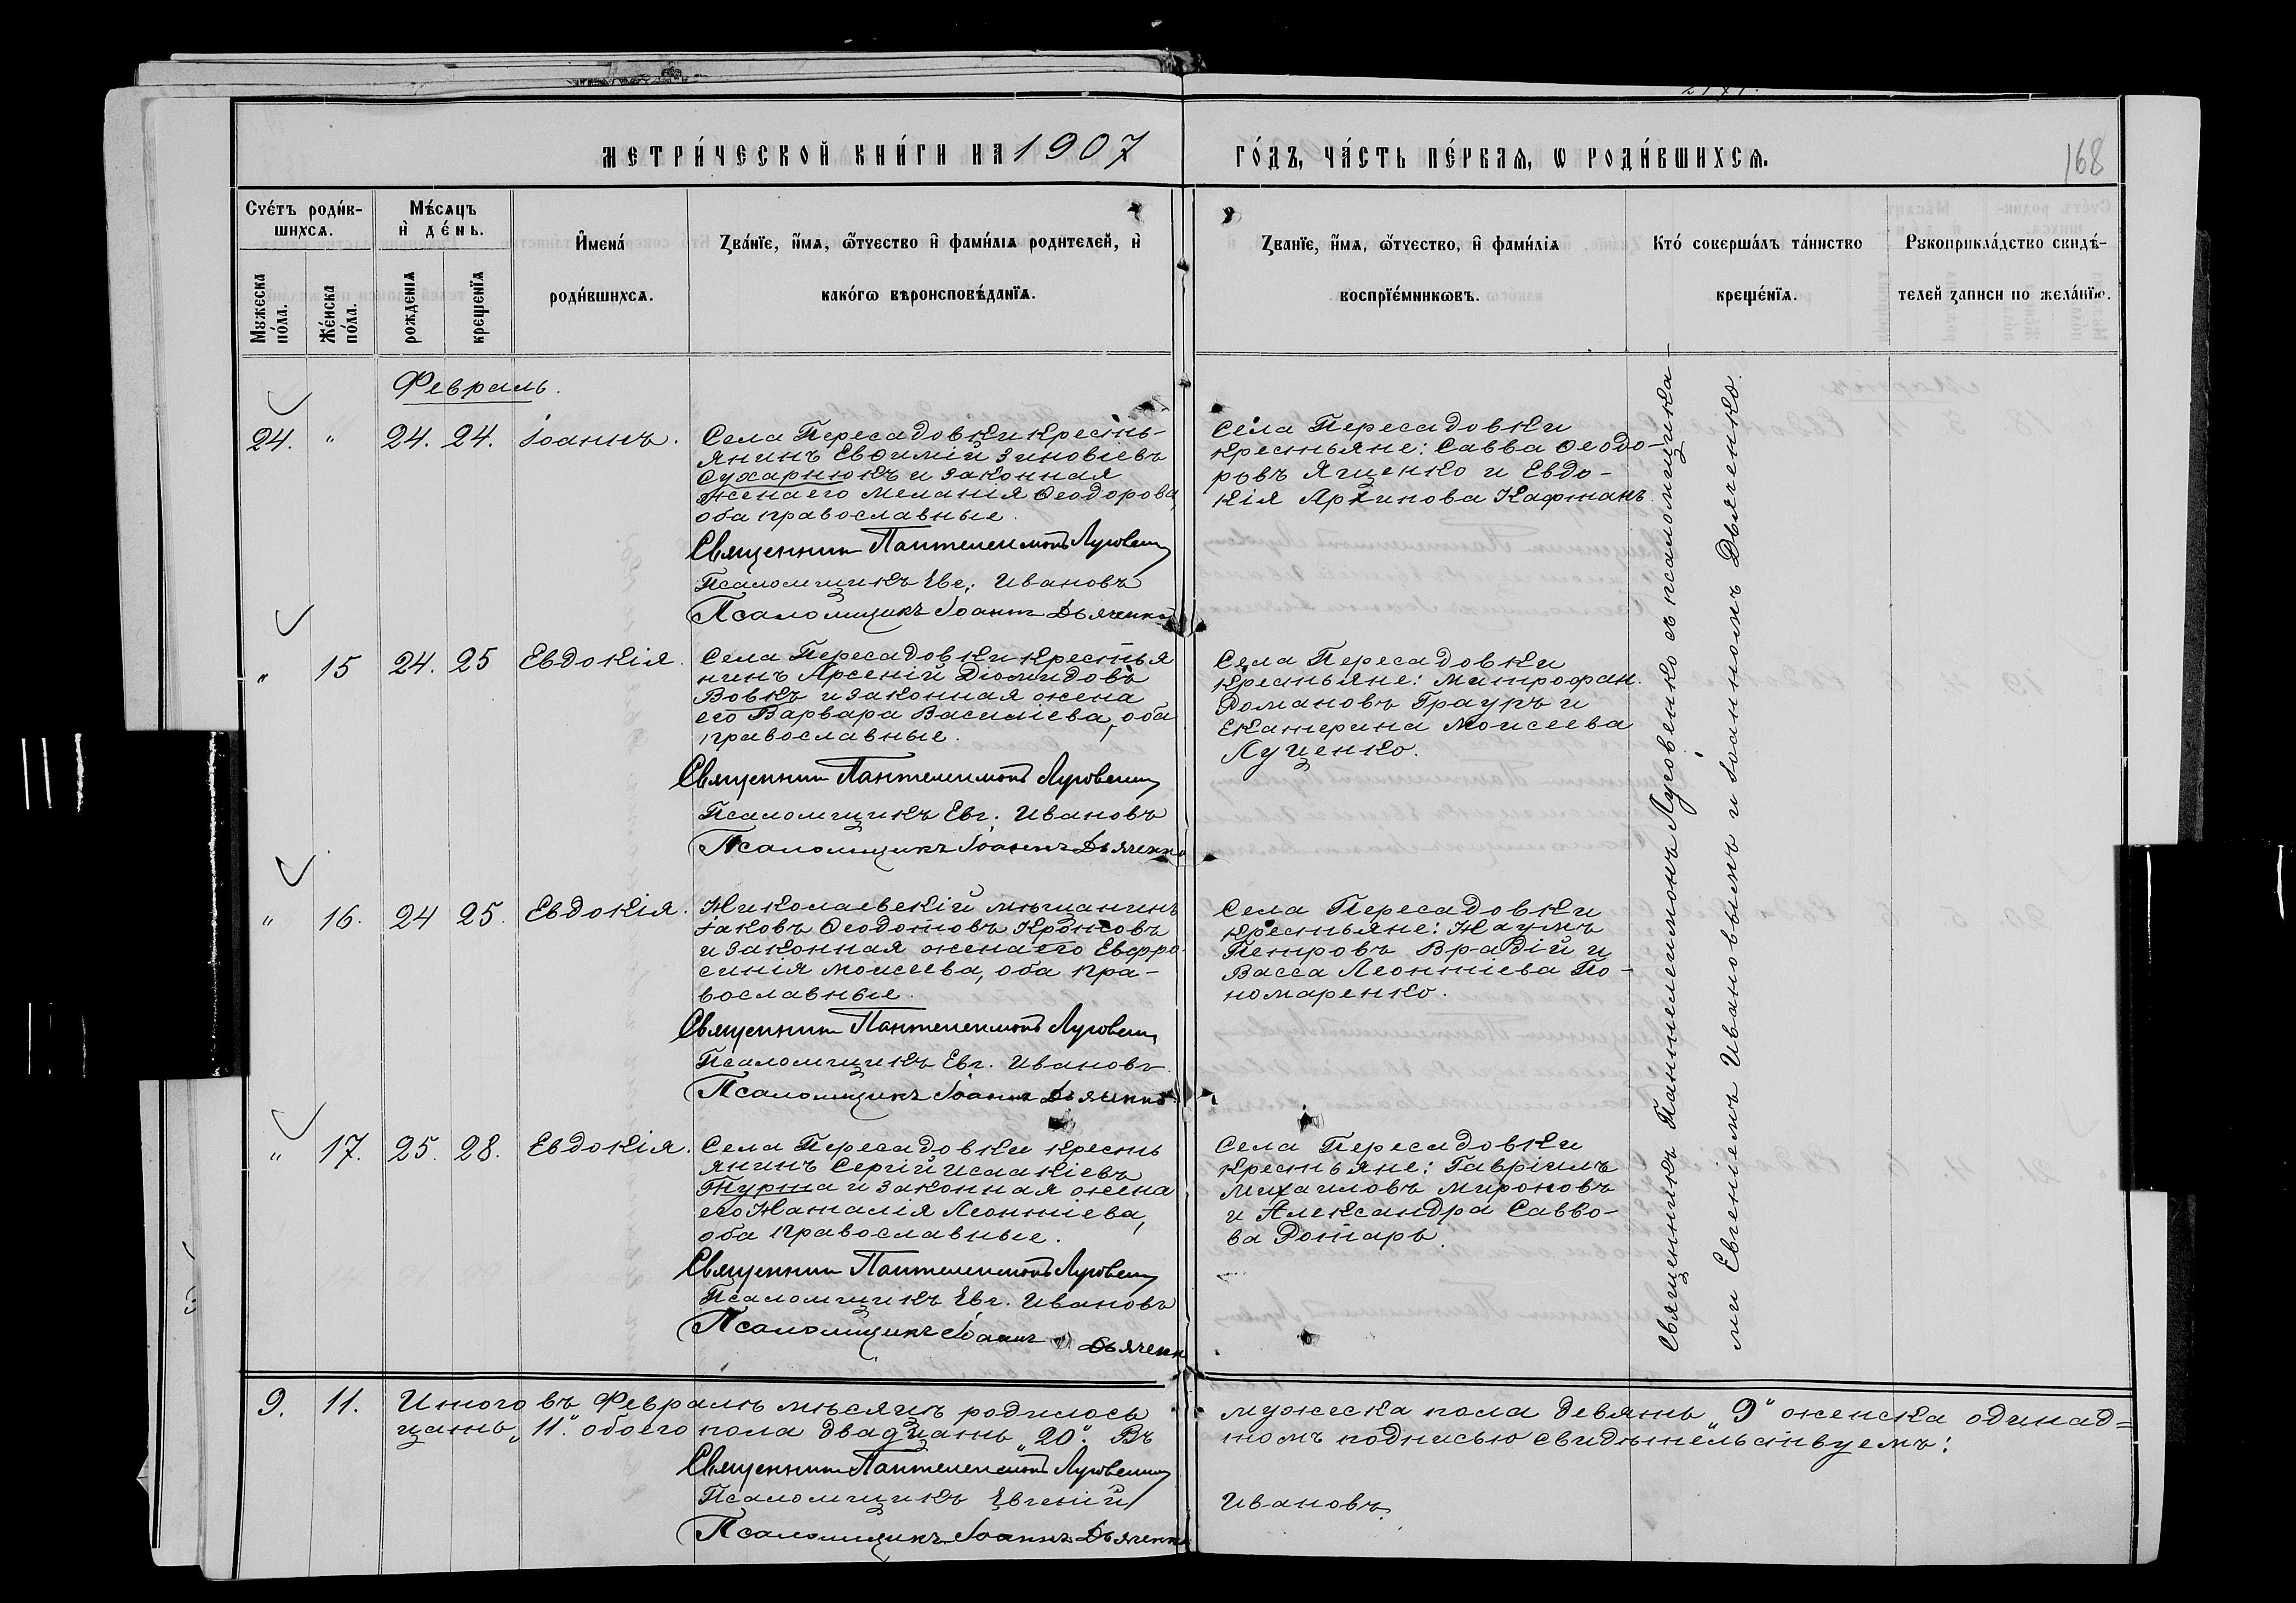 МЕТРИ́ЧЕСКОЙ КНИ́ГИ НА 1907
ГО́ДЪ, ЧА́СТЬ ПЕ́РВАѦ, Ѡ РОДИ́ВШИХСѦ.
168
Счéтъ роди́в-
шихсѧ.
Мѣ́сѧцъ
и҆ де́нь.
Мꙋжеска
по́ла.
Же́нска
по́ла.
рожденїѧ
крещенїѧ
И҆мена́
роди́вшихсѧ.
Зва́нїе, и҆́мѧ, ѻ҆́тчество и҆ фами́лїѧ родителей, и҆
како́гѡ вѣроисповѣ́данїѧ.
Званїе, и҆́мѧ, ѻ҆́тчество, и҆ фами́лїѧ
воспрїе́мникѡвъ.
Кто́ соверша́лъ та́инство
креще́нїѧ.
Рꙋкоприкла́дство свидѣ́-
телей записи по жела́нїю.
Февраль.
24. " 24. 24. Іоаннъ.
Села Пересадовки кресть-
янинъ Евѳимій Зиновіевъ
Сухарнюкъ и законная
жена его Меланія Ѳеодорова,
оба православные.
Священник Пантелеимонъ Луговенко
Псаломщикъ Евг. Ивановъ
Псаломщикъ Іоаннъ Дьяченко
Села Пересадовки
крестьяне: Савва Ѳеодо-
ровъ Ященко и Евдо-
кія Архипова Кафтанъ.
" 15 24. 25 Евдокія.
Села Пересадовки крестья
нинъ Арсеній Діомидовъ
Вовкъ и законная жена
его Варвара Василіева, оба
православные.
Священник Пантелеимонъ Луговенко
Псаломщикъ Евг. Ивановъ
Псаломщикъ Іоаннъ Дьяченко
Села Пересадовки
крестьяне: Митрофан
Романовъ Грауръ и
Екатерина Моисеева
Луценко.
" 16. 24 25. Евдокія.
Николаевскій мѣщанинъ
Іаковъ Ѳеодотовъ
и законная жена его Евфро-
синія Моисеева, оба пра-
вославные.
Священник Пантелеимонъ Луговенко
Псаломщикъ Евг. Ивановъ
Псаломщикъ Іоаннъ Дьяченко
Села Пересадовки
крестьяне: Наумъ
Петровъ Врадій и
Васса Леонтіева По-
номаренко.
" 17. 25. 28. Евдокія.
Села Пересадовки кресть
янинъ Сергій Исаакіевъ
Турта и законная жена
его Наталія Леонтіева,
оба православные.
Священник Пантелеимонъ Луговенко
Псаломщикъ Евг. Ивановъ
Псаломщикъ Іоаннъ Дьяченко
Села Пересадовки
крестьяне: Гавріилъ
Михаиловъ Мироновъ
и Александра Савво-
ва Ротарь.
Священникъ Пантелеимонъ Луговенко съ псаломщика-
ми Евгеніемъ Ивановымъ и Іоанномъ Дьяченко.
9. 11. Итого въ Февралѣ мѣсяцѣ родилось мужеска пола девять „9" женска одинад=
цать „11". обоего пола двадцать „20". Въ томъ подписью свидѣтельствуемъ:
Священник Пантелеимонъ Луговенко
Псаломщикъ Евгеній Ивановъ.
Псаломщикъ Іоаннъ Дьяченко